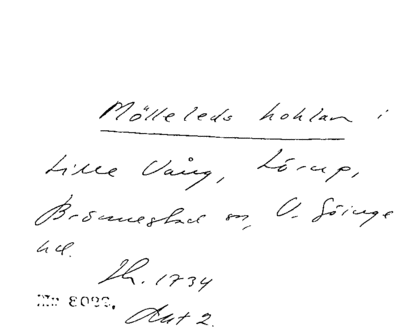 Mölleleds hohlan i
Lille Vång, Lörup,
Brönnestad sn, V. Göinge
hd.
Sk. 1734
Akt 2.